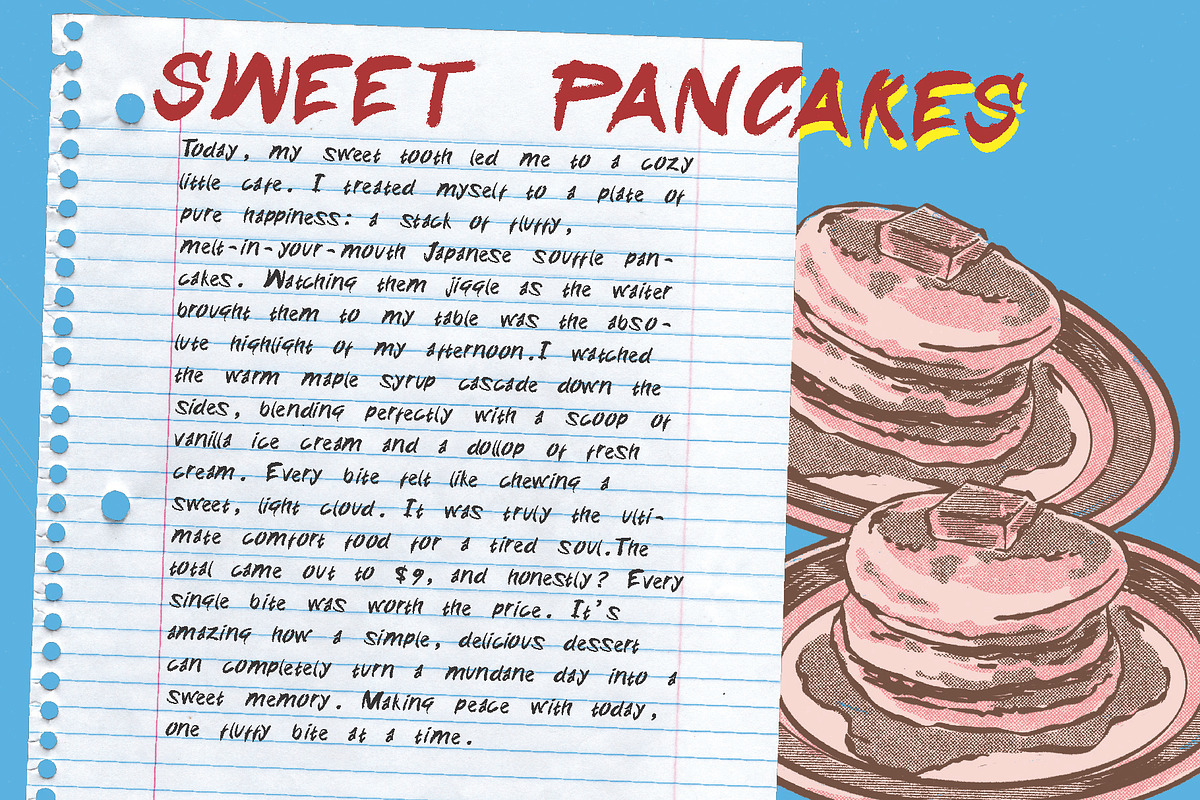 SWEET PANCAKES
Today, my sweet tooth led me to a cozy
little cafe. I treated myself to a plate of
pure happiness: a stack of fluffy,
melt-in-your-mouth Japanese souffle pan-
cakes. Watching them jiggle as the waiter
brought them to my table was the abso-
lute highlight of my afternoon.I watched
the warm maple syrup cascade down the
sides, blending perfectly with a scoop of
vanilla ice cream and a dollop of fresh
cream. Every bite felt like chewing a
sweet, light cloud. It was truly the ulti-
mate comfort food for a tired soul.The
total came out to $9, and honestly? Every
single bite was worth the price. It's
amazing how a simple, delicious dessert
can completely turn a mundane day into a
sweet memory. Making peace with today,
one fluffy bite at a time.